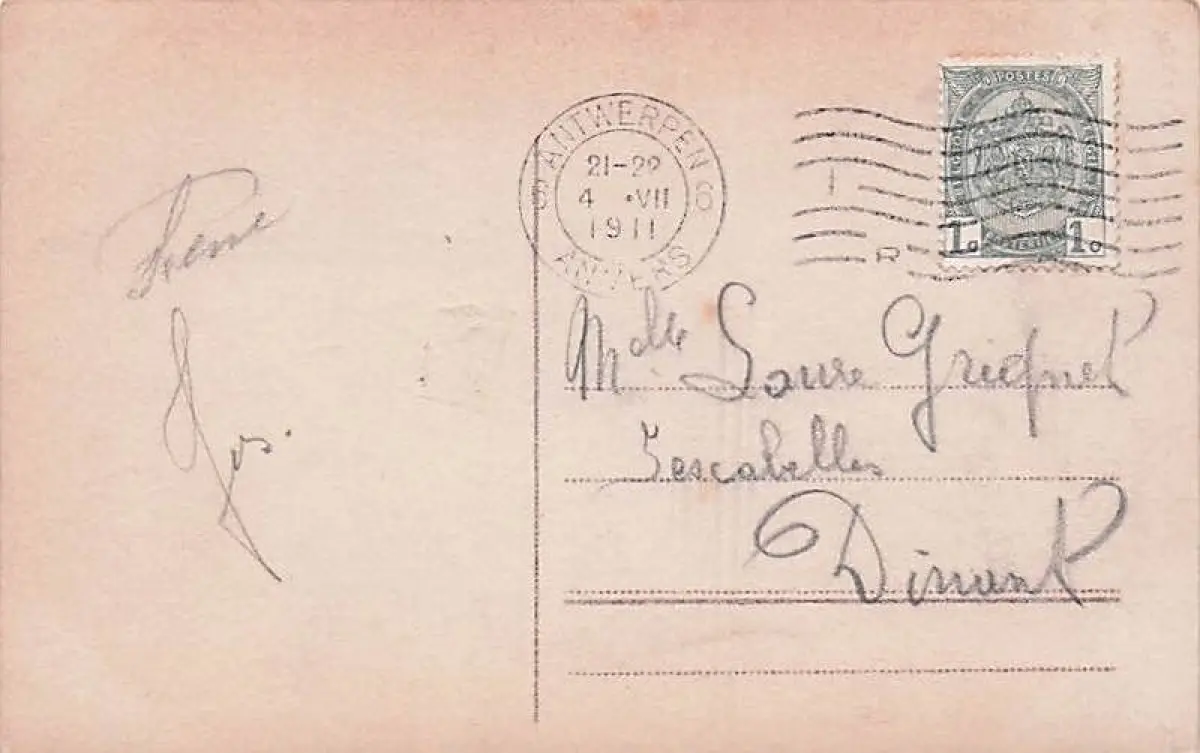 Jos.
ANTWERPEN
6 6
21-22
4 · VII
1911
ANVERS
POSTES
1c 1c
R
Melle Laure Grignet
Dinant